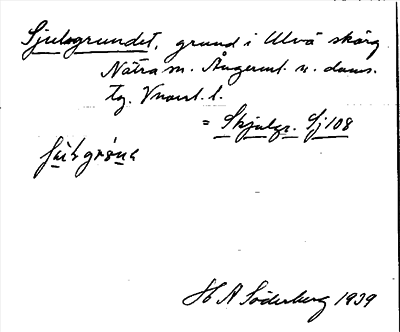 Sjulsgrundet, grund i Ulvö skärg.
Nätra sn. Ångerml. n. doms.
tg. Vnorrl. l.
= Skjulgr. Sj 108
H A Söderberg 1939